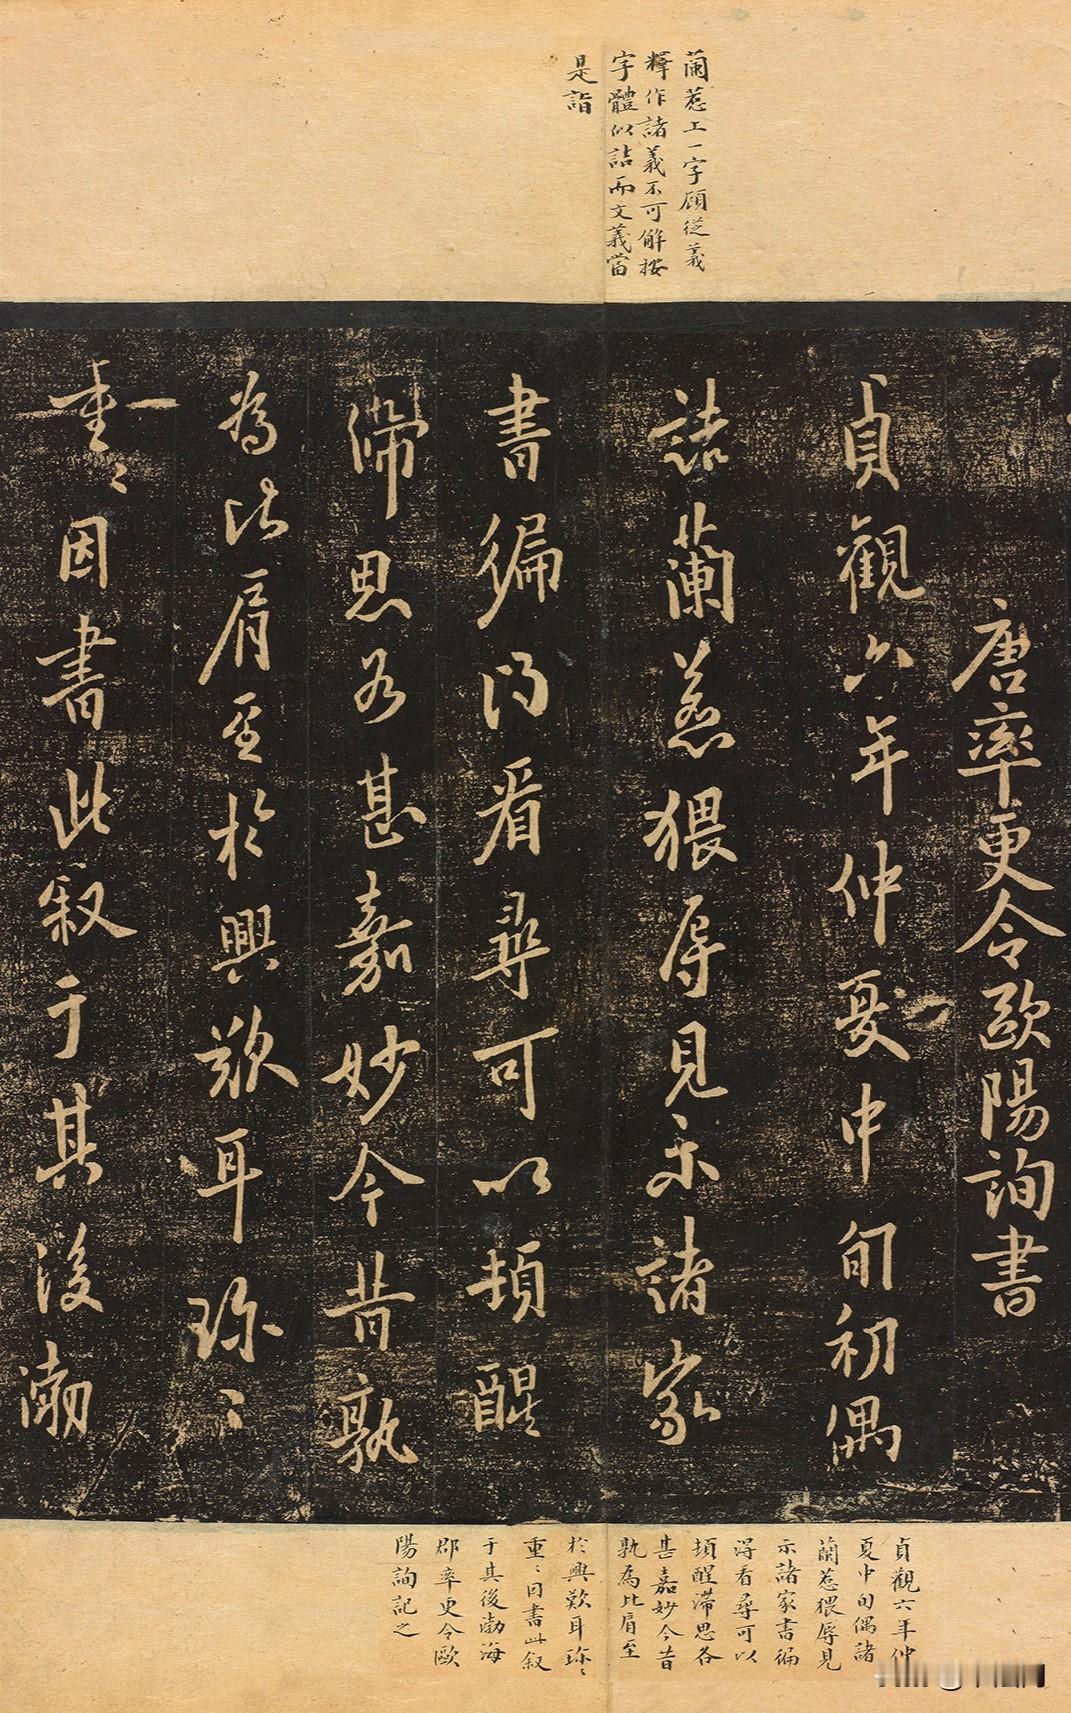 蘭惹上一字顧從義
釋作諸義不可解按
字體似詰而文義當
是詣
唐率更令歐陽詢書
貞觀六年仲夏中旬初偶
詣蘭惹猥辱見示諸家
書徧得看尋可以頓醒
滯思各甚嘉妙今昔孰
為比肩至於興歎耳珎〻
重〻因書此叙于其後渤
貞觀六年仲
夏中旬偶諸
蘭惹猥辱見
示諸家書徧
淂看尋可以
頓醒滯思各
甚嘉妙今昔
孰為比肩至
於興歎耳珎〻
重〻因書此叙
于其後渤海
郡率更令歐
陽詢記之